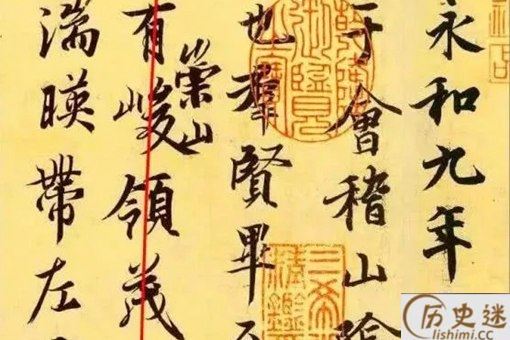 永和九年
于會稽山陰
也羣賢畢
崇山
有峻領茂
湍暎帶左
历史迷
lishimi.cc